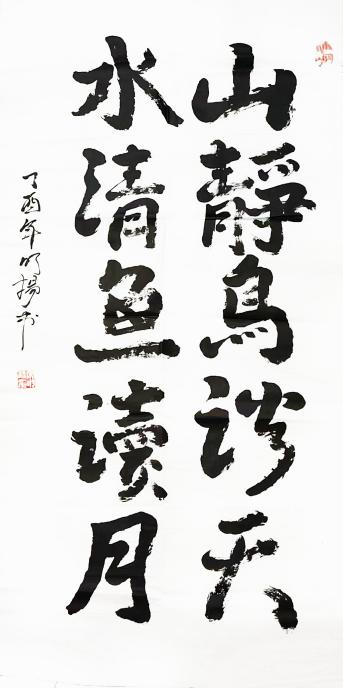 山靜鳥談天
水清魚讀月
丁酉年明揚书